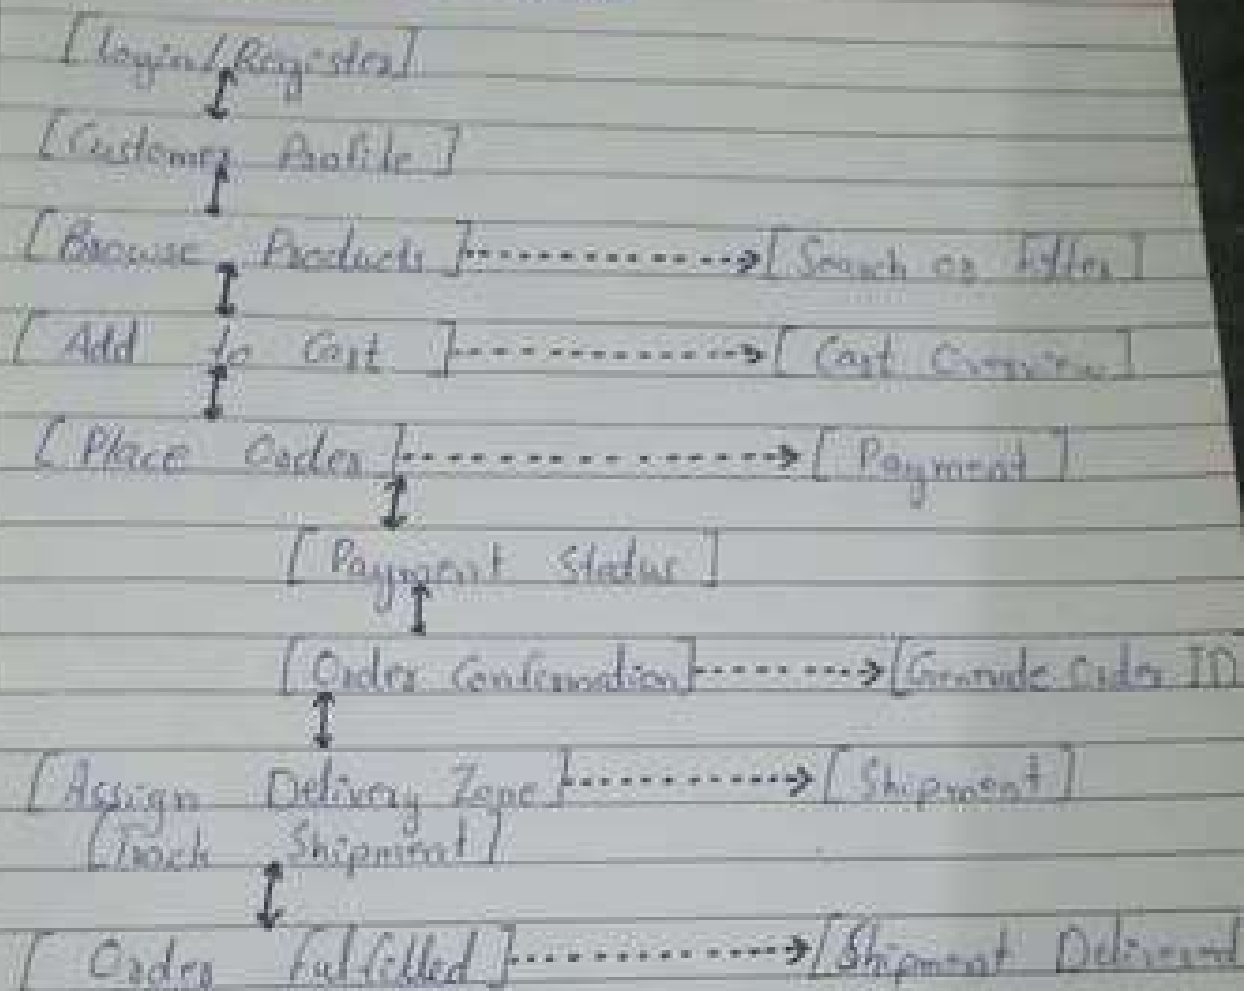 [Login/Register]
[Customer Profile]
[Browse Products] [Search or Filter]
[Add to Cart] [Cart Overview]
[Place Order] [Payment]
[Payment Status]
[Order Confirmation] [Generate Order ID
[Assign Delivery Zone] [Shipment]
[Track Shipment]
[Order Fulfilled] [Shipment Delivered